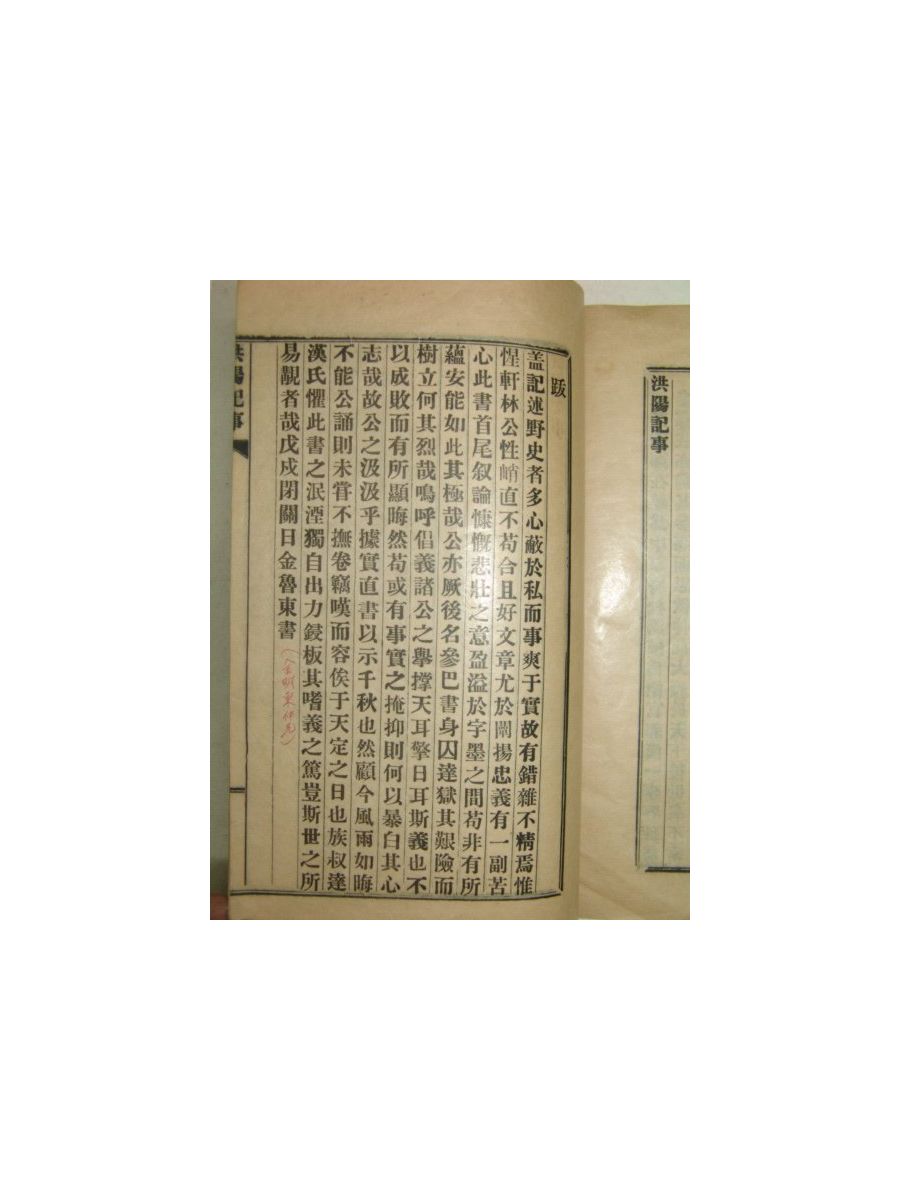 洪陽記事
跋
盖記述野史者多心蔽於私而事爽于實故有錯雜不精焉惟
悝軒林公性峭直不苟合且好文章尤於闡揚忠義有一副苦
心此書首尾叙論慷慨悲壯之意盈溢於字墨之間苟非有所
蘊安能如此其極哉公亦厥後名參巴書身囚達獄其艱險而
樹立何其烈哉嗚呼倡義諸公之擧撑天耳擎日耳斯義也不
以成敗而有所顯晦然苟或有事實之掩抑則何以暴白其心
志哉故公之汲汲乎據實直書以示千秋也然顧今風雨如晦
不能公誦則未甞不撫卷竊嘆而容俟于天定之日也族叔達
漢氏懼此書之泯湮獨自出力鋟板其嗜義之篤豈斯世之所
易覯者哉戊戌閉關日金魯東書
洪陽記事